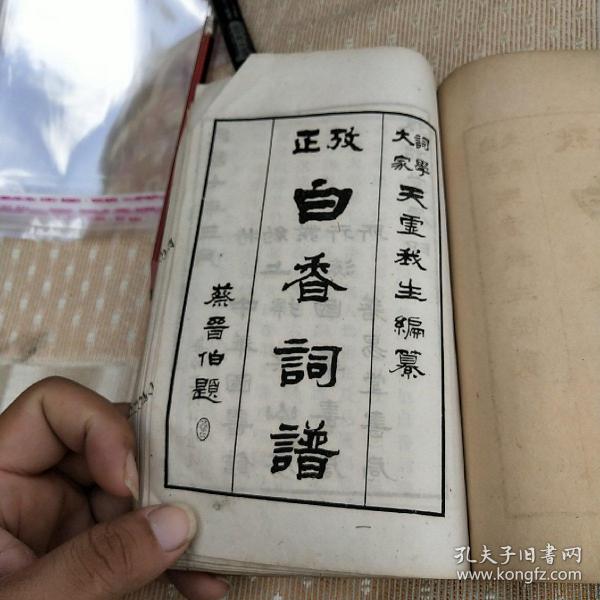 詞學大家天虛我生編纂
攷正
白香詞譜
蔡晉伯題
孔夫子旧书网
www.kongfz.com